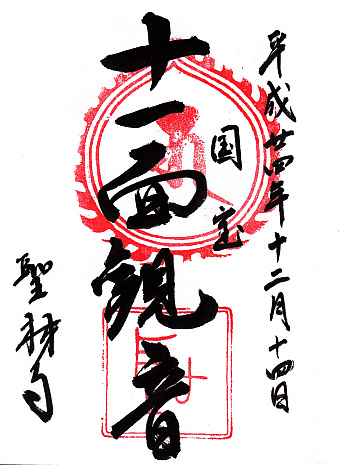 平成廿四年十二月十四日
国宝
十一面観音
聖林寺